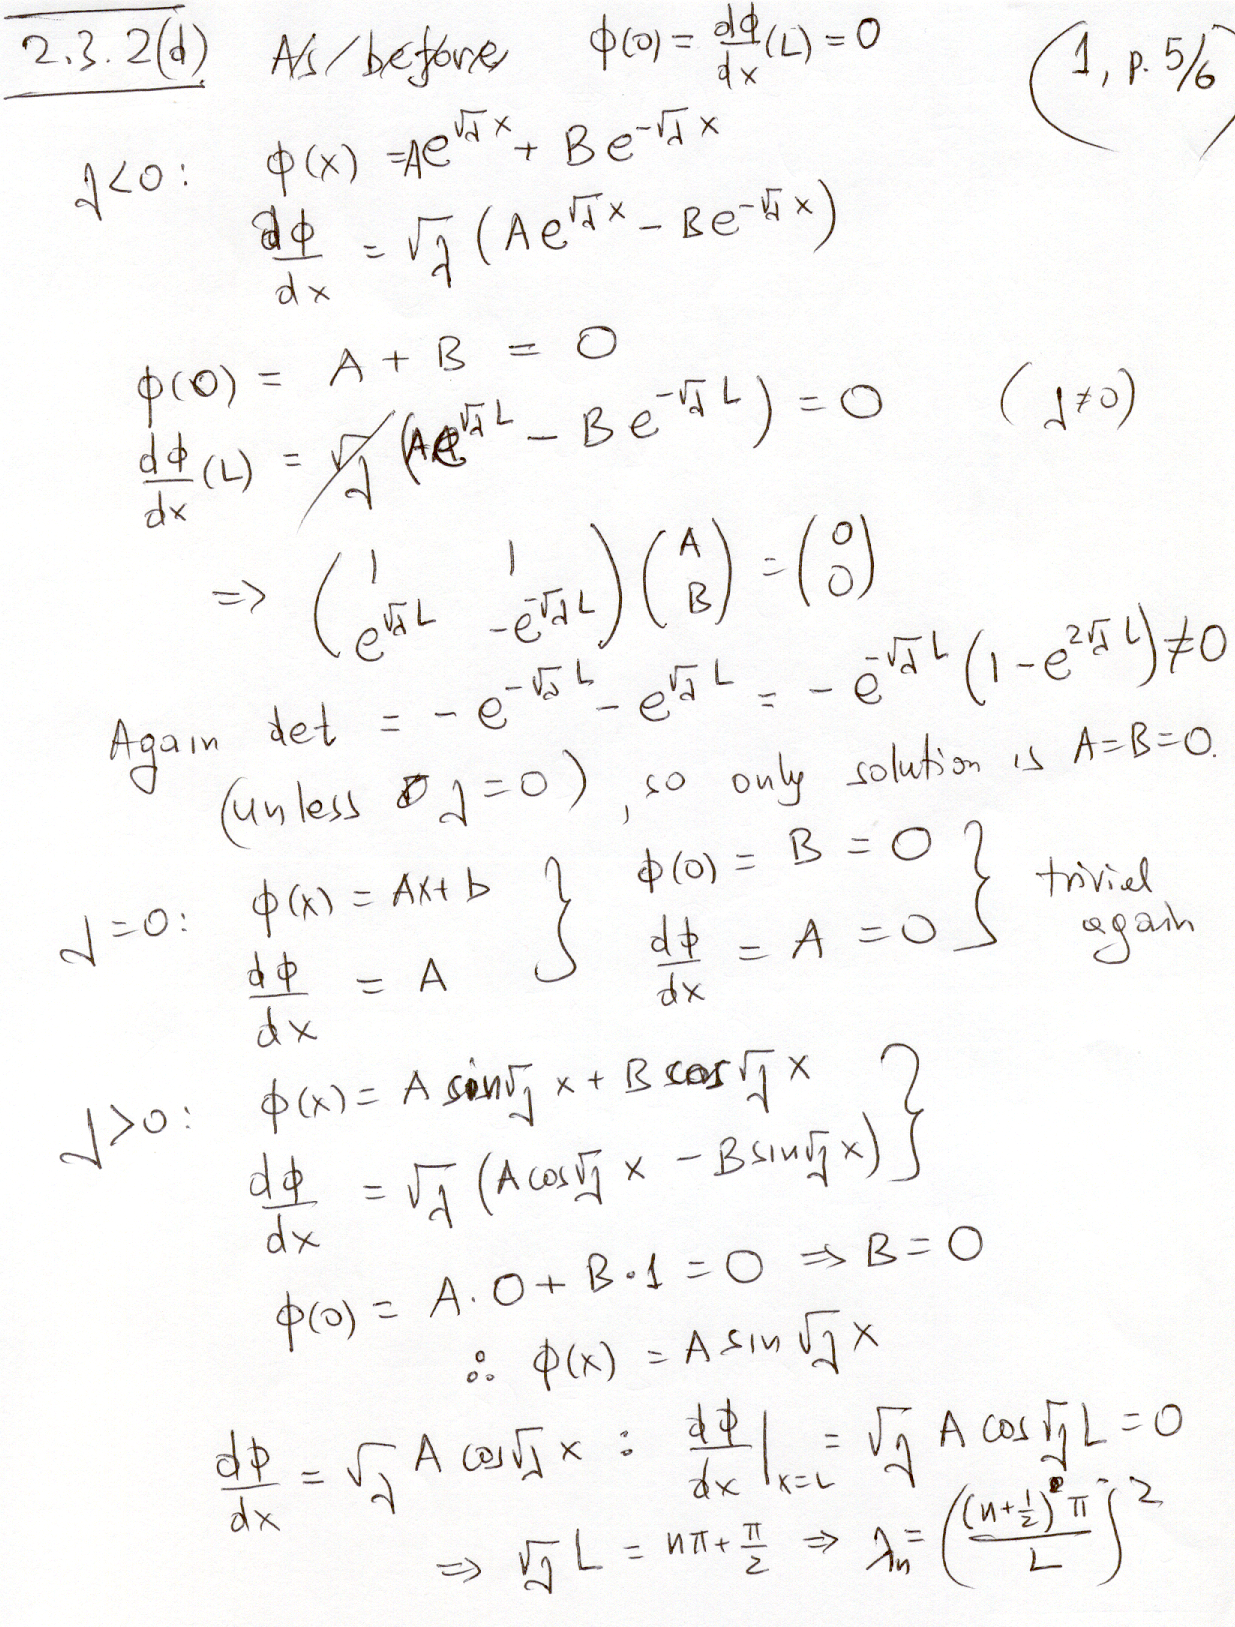 2.3.2(d) As before, ϕ(0) = dϕ/dx (L) = 0 (1, p. 5/6)
λ<0: ϕ(x) = Ae^{√λ x} + Be^{-√λ x}
dϕ/dx = √λ (Ae^{√λ x} - Be^{-√λ x})
ϕ(0) = A + B = 0
dϕ/dx (L) = √λ (Ae^{√λ L} - Be^{-√λ L}) = 0 (λ≠0)
⇒ (1 1; e^{√λ L} -e^{-√λ L}) (A; B) = (0; 0)
Again det = -e^{-√λ L} - e^{√λ L} = -e^{-√λ L} (1 - e^{2√λ L}) ≠ 0
(unless λ=0), so only solution is A=B=0.
λ=0: ϕ(x) = Ax+b } ϕ(0) = B = 0 } trivial again
dϕ/dx = A } dϕ/dx = A = 0 }
λ>0: ϕ(x) = A sin√λ x + B cos√λ x }
dϕ/dx = √λ (A cos√λ x - B sin√λ x) }
ϕ(0) = A·0 + B·1 = 0 ⇒ B = 0
∴ ϕ(x) = A sin √λ x
dϕ/dx = √λ A cos√λ x : dϕ/dx |_{x=L} = √λ A cos √λ L = 0
⇒ √λ L = nπ + π/2 ⇒ λ_n = ((n+1/2)π/L)^2